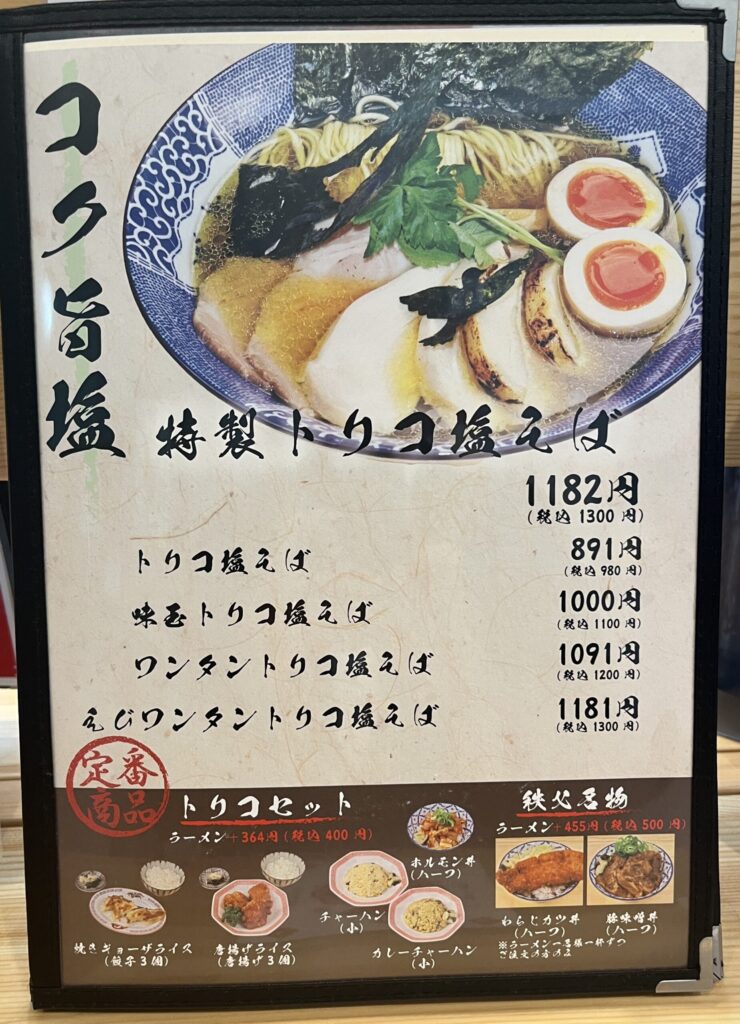 コク旨塩
特製トリコ塩そば
1182円
(税込 1300 円)
トリコ塩そば
891円
(税込 980 円)
味玉トリコ塩そば
1000円
(税込 1100 円)
ワンタントリコ塩そば
1091円
(税込 1200 円)
えびワンタントリコ塩そば
1181円
(税込 1300 円)
定番
商品
トリコセット
ラーメン+364円(税込 400 円)
焼きギョーザライス
(餃子3個)
唐揚げライス
(唐揚げ3個)
チャーハン
(小)
カレーチャーハン
(小)
ホルモン丼
(ハーフ)
秩父名物
ラーメン+455円(税込 500 円)
わらじカツ丼
(ハーフ)
豚味噌丼
(ハーフ)
※ラーメン一名様一杯ずつ
ご注文の方のみ